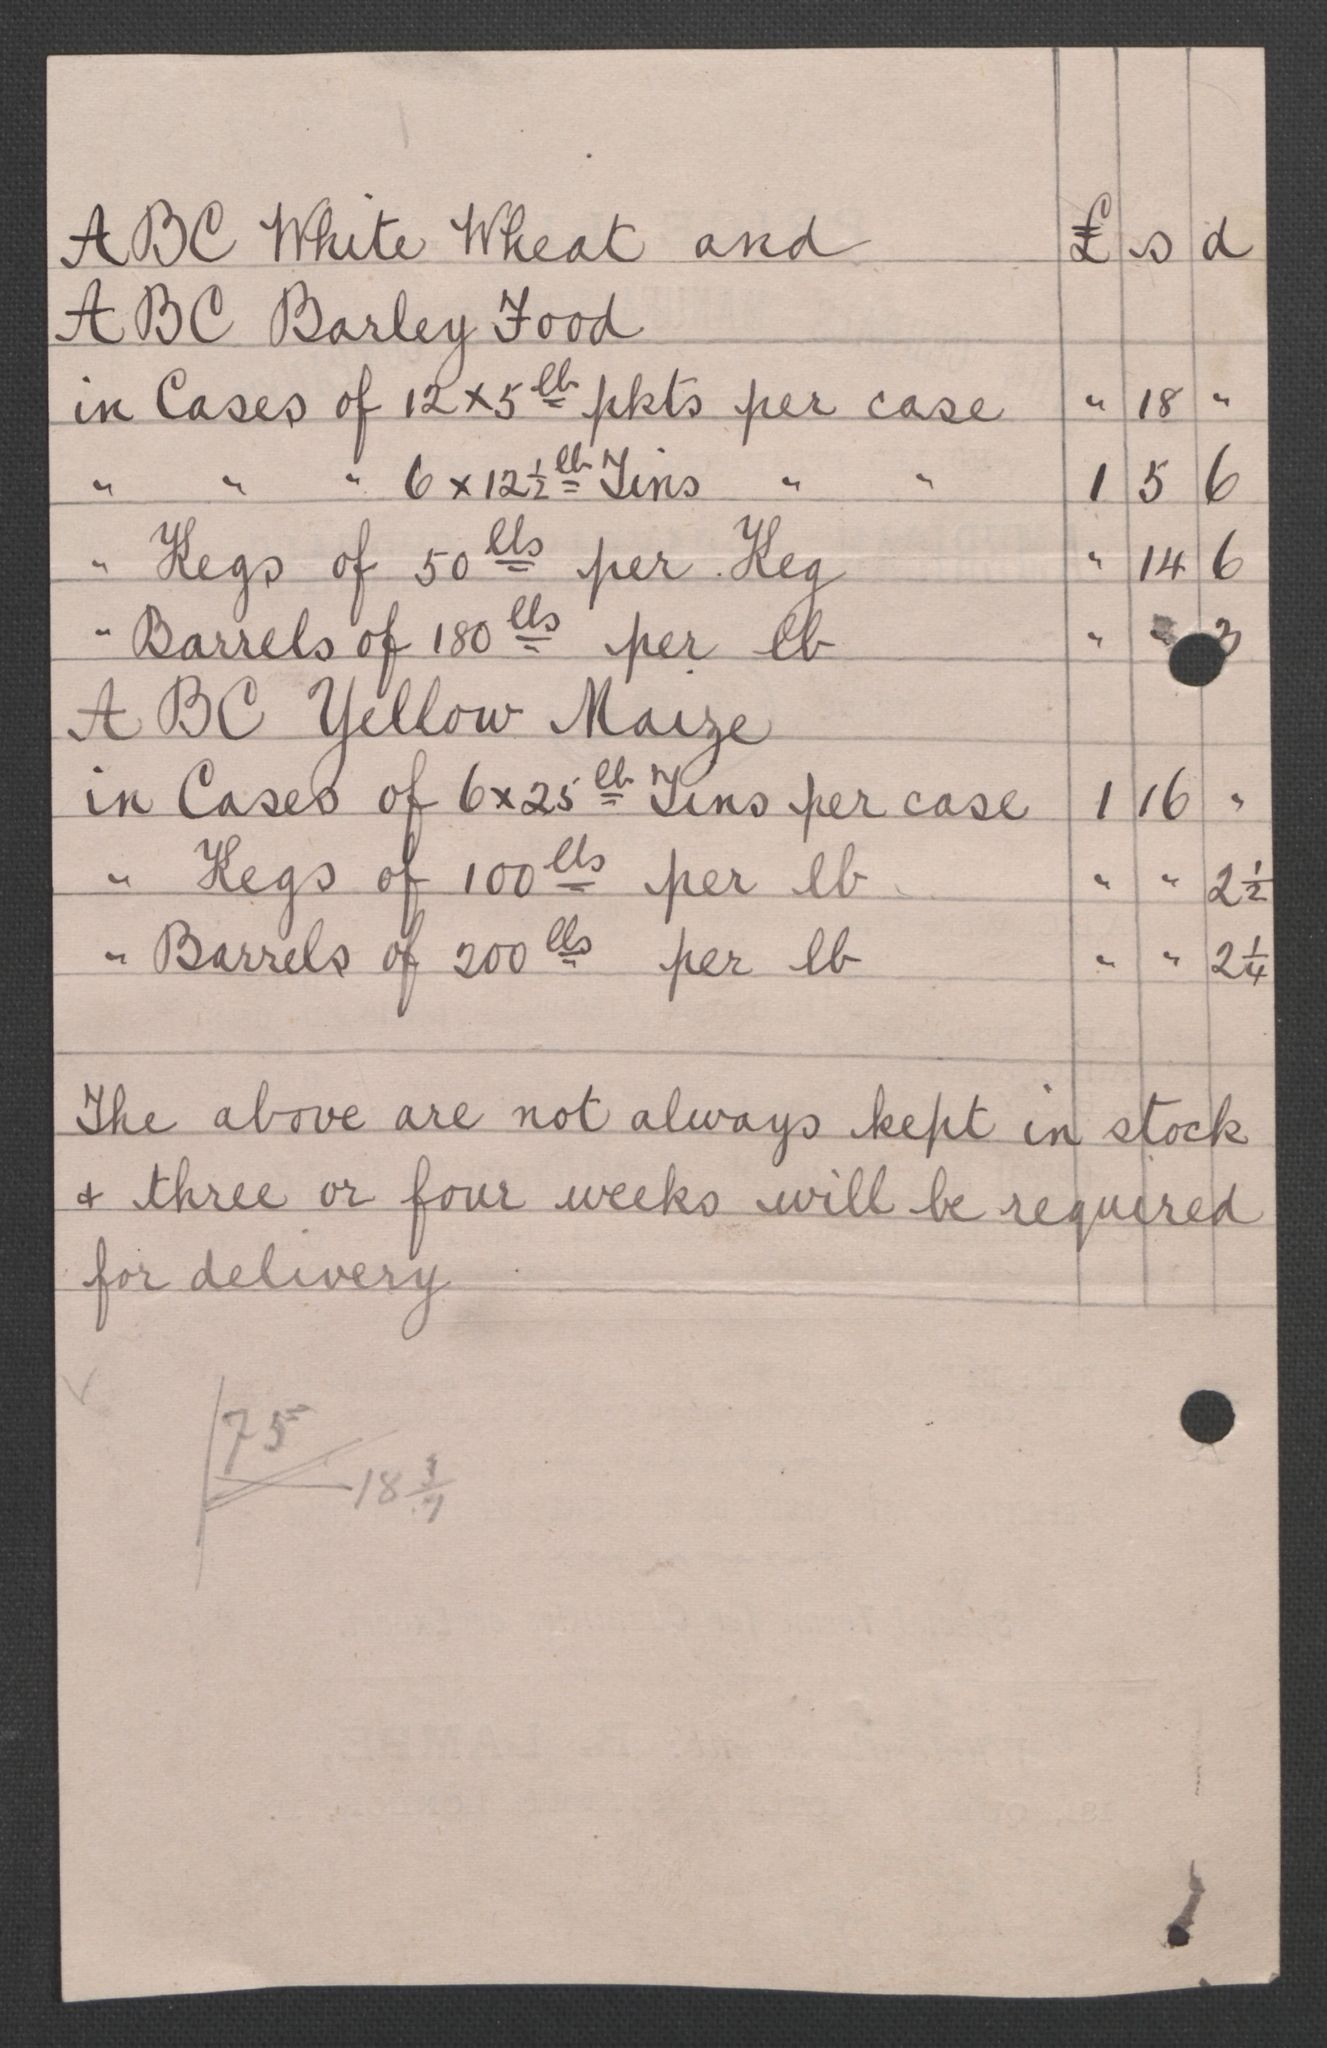 ABC White Wheat and £ s d
ABC Barley Food
in Cases of 12 x 5 lb pkts per case " 18 "
" " " 6 x 12½ lb Tins " " 1 5 6
" Kegs of 50 lbs per Keg " 14 6
" Barrels of 180 lbs per lb " " 3
ABC Yellow Maize
in Cases of 6 x 25 lb Tins per case 1 16 "
" Kegs of 100 lbs per lb " " 2½
" Barrels of 200 lbs per lb " " 2¼
The above are not always kept in stock
& three or four weeks will be required
for delivery
75
18